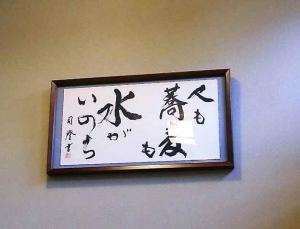 人も
蕎麦も
水が
いのち